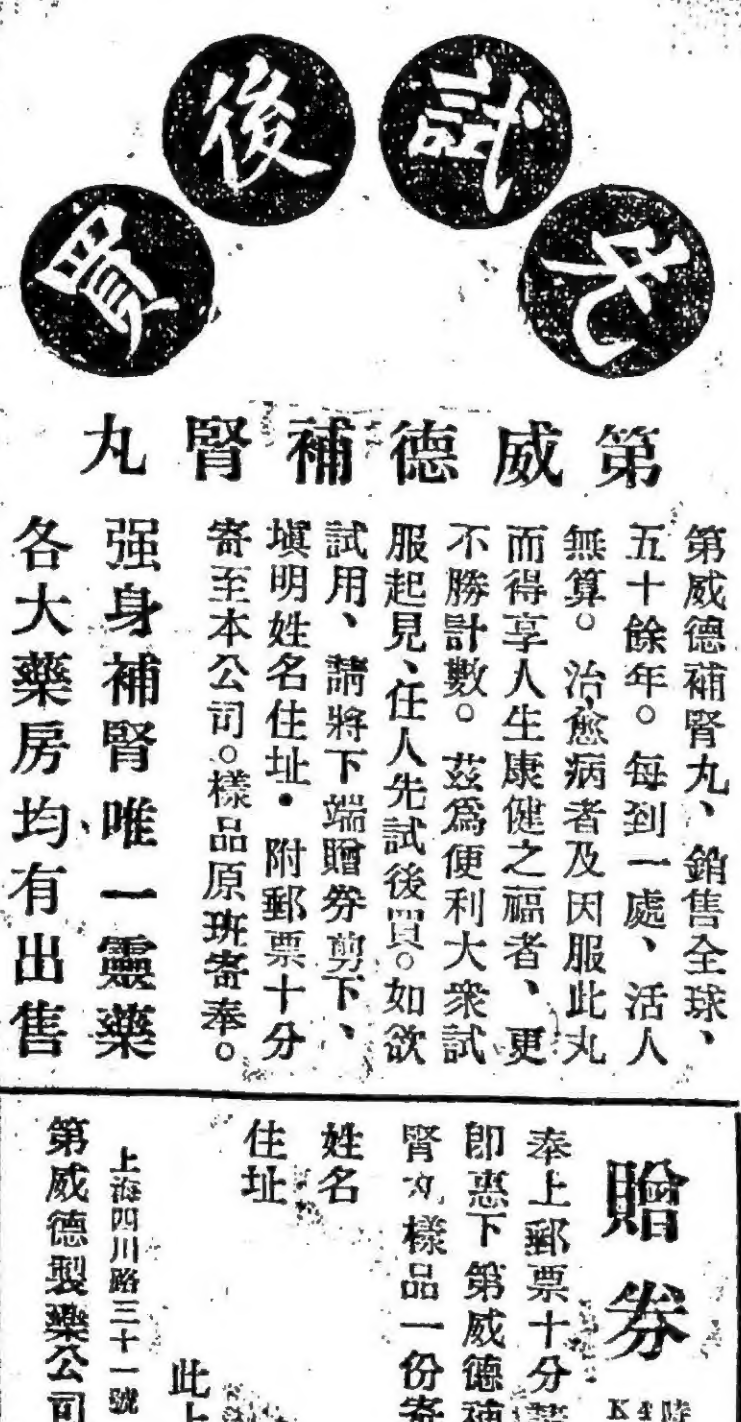 先試後買
第威德補腎丸
第威德補腎丸、銷售全球、
五十餘年。每到一處、活人
無算。治愈病者及因服此丸
而得享人生康健之福者、更
不勝計數。茲爲便利大衆試
服起見、任人先試後買。如欲
試用、請將下端贈券剪下、
塡明姓名住址・附郵票十分
寄至本公司。樣品原班寄奉。
强身補腎唯一靈藥
各大藥房均有出售
贈券
奉上郵票十分
卽惠下第威德補
腎丸樣品一份寄
姓名
住址
此上
上海四川路三十一號
第威德製藥公司